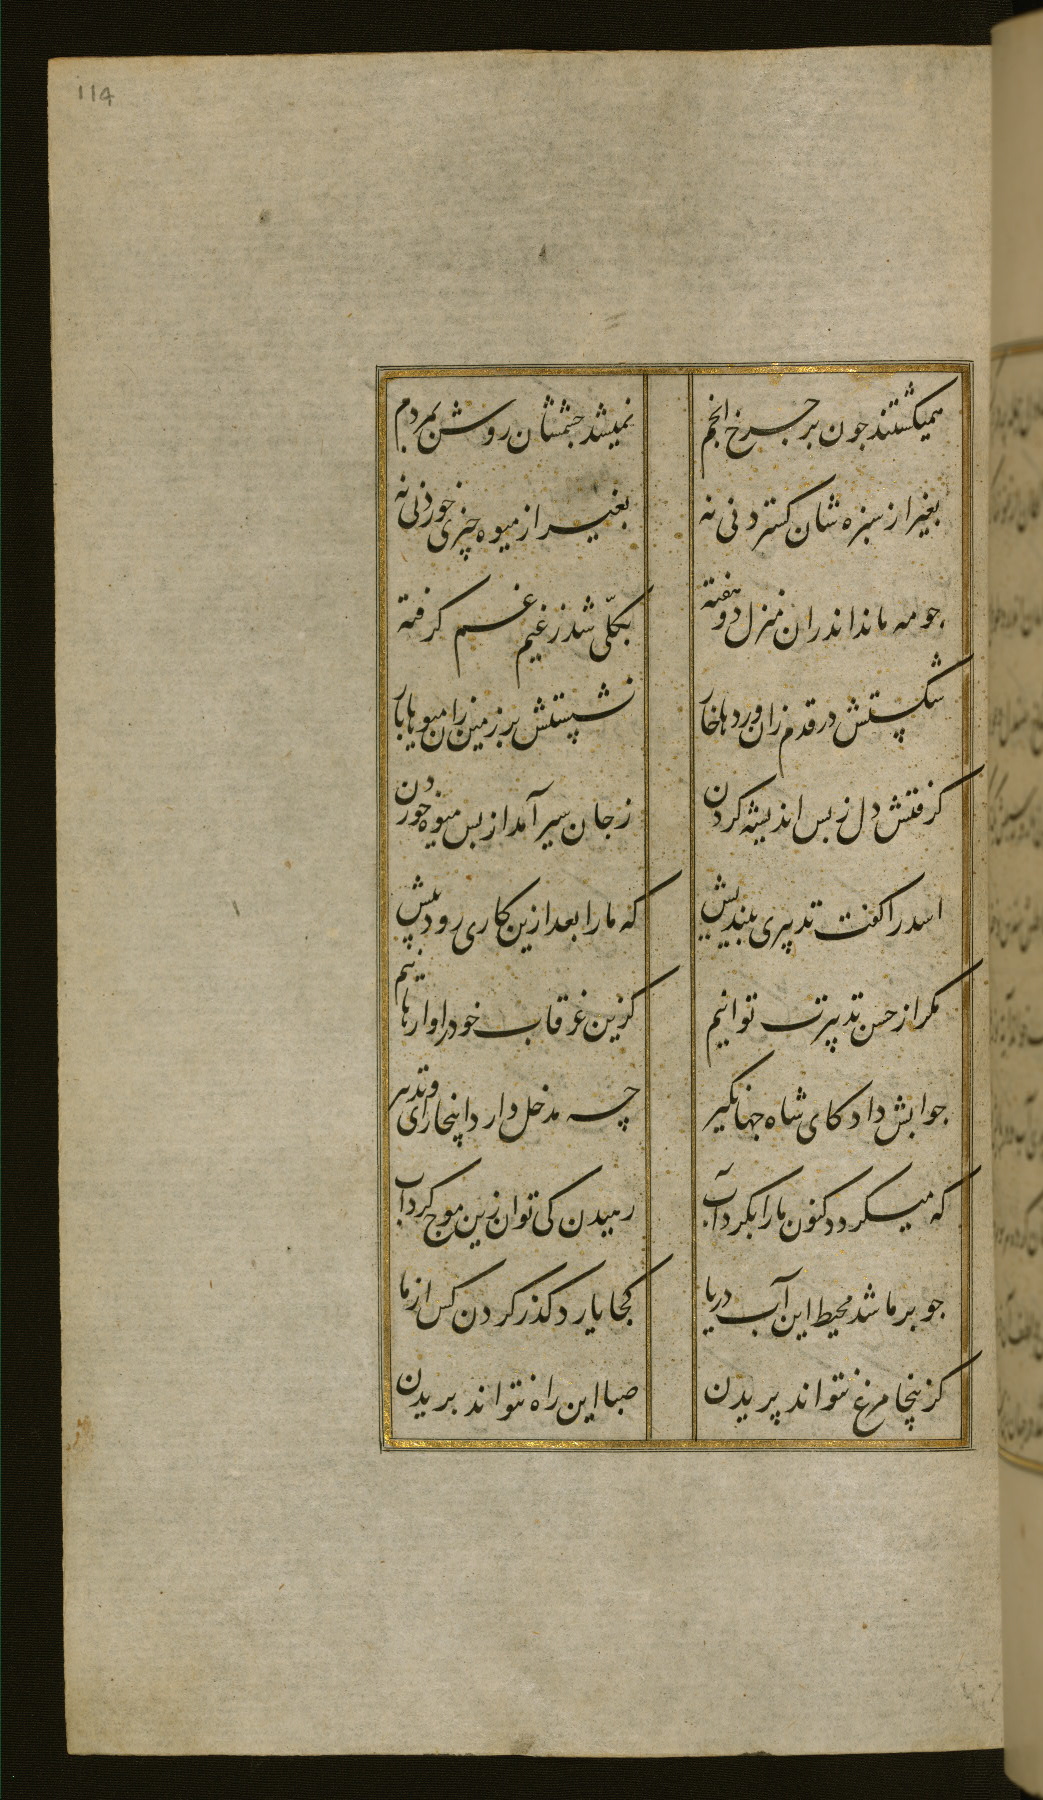 114
همیکشتند جون بر جرخ انجم
نمیشد جشمشان روشن بمردم
بغیر از سبزه شان کستردنی نه
بغیر از میوه چیزی خوردنی نه
جو مه ماند اندران منزل دو هفته
بکلّی شد ز غیم غم کرفته
شکستش در قدم زان وردها خار
نشستش بر زمین زان میوها بار
کرفتش دل ز بس اندیشه کردن
ز جان سیر آمد از بس میوه خوردن
اسد را کفت تدبیری بیندیش
که ما را بعد ازین کاری رود پیش
مکر از حسن تدبیرت توانیم
کزین غرقاب خود را وارهانیم
جوابش داد کای شاه جهانکیر
چه مدخل دارد اینجا رای و تدبیر
که میکردد کنون ما را بکرد آب
رمیدن کی توان زین موج کرداب
جو بر ما شد محیط این آب دریا
کجا یارد کذر کردن کس از ما
کزینجا مرغ نتواند پریدن
صبا این راه نتواند بریدن